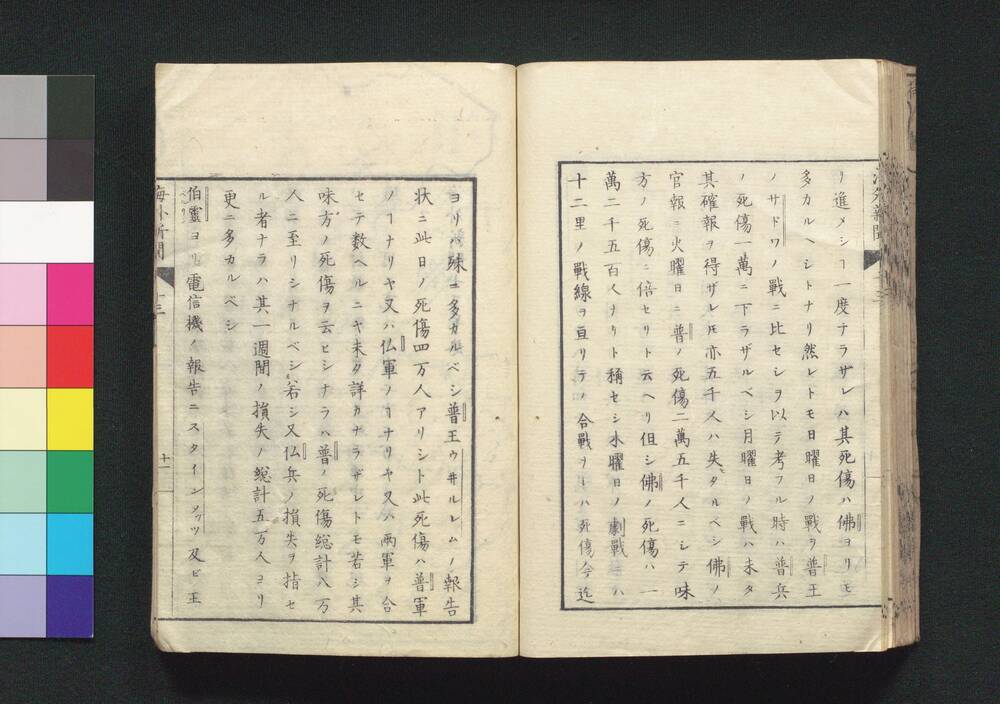 ノ進メシヿ一度ナラザレハ其死傷ハ佛ヨリモ
多カルヘシトナリ然レトモ日曜日ノ戦ヲ普王
ノサドワノ戰ニ比セシヲ以テ考フル時ハ普兵
ノ死傷一萬ニ下ラザルベシ月曜日ノ戰ハ未タ
其確報ヲ得ザレ𪜈亦五千人ハ失タルベシ佛ノ
官報ニ火曜日ニ普ノ死傷二萬五千人ニシテ味
方ノ死傷ニ倍セリト云ヘリ但シ佛ノ死傷ハ一
萬二千五百人ナリト稱セシ水曜日ノ劇戰ニハ
十二里ノ戰線ヲ亘リテノ合戰ヲハ死傷今迄
ヨリハ殊ニ多カルベシ普王ウ井ルレムノ報告
状ニ此日ノ死傷四万人アリシト此死傷ハ普軍
ノヿナリヤ又ハ仏軍ノヿナリヤ又ハ両軍ヲ合
セテ数ヘルニヤ未タ詳カナラザレトモ若シ其
味方ノ死傷ヲ云ヒシナラハ普ノ死傷総計八万
人ニ至リシナルベシ若シ又仏兵ノ損失ヲ指セ
ル者ナラハ其一週間ノ損失ノ総計五万人ヨリ
更ニ多カルベシ
伯靈ヨリ電信機ノ報告ニスタインメッツ及ビ王
海外新聞
十一